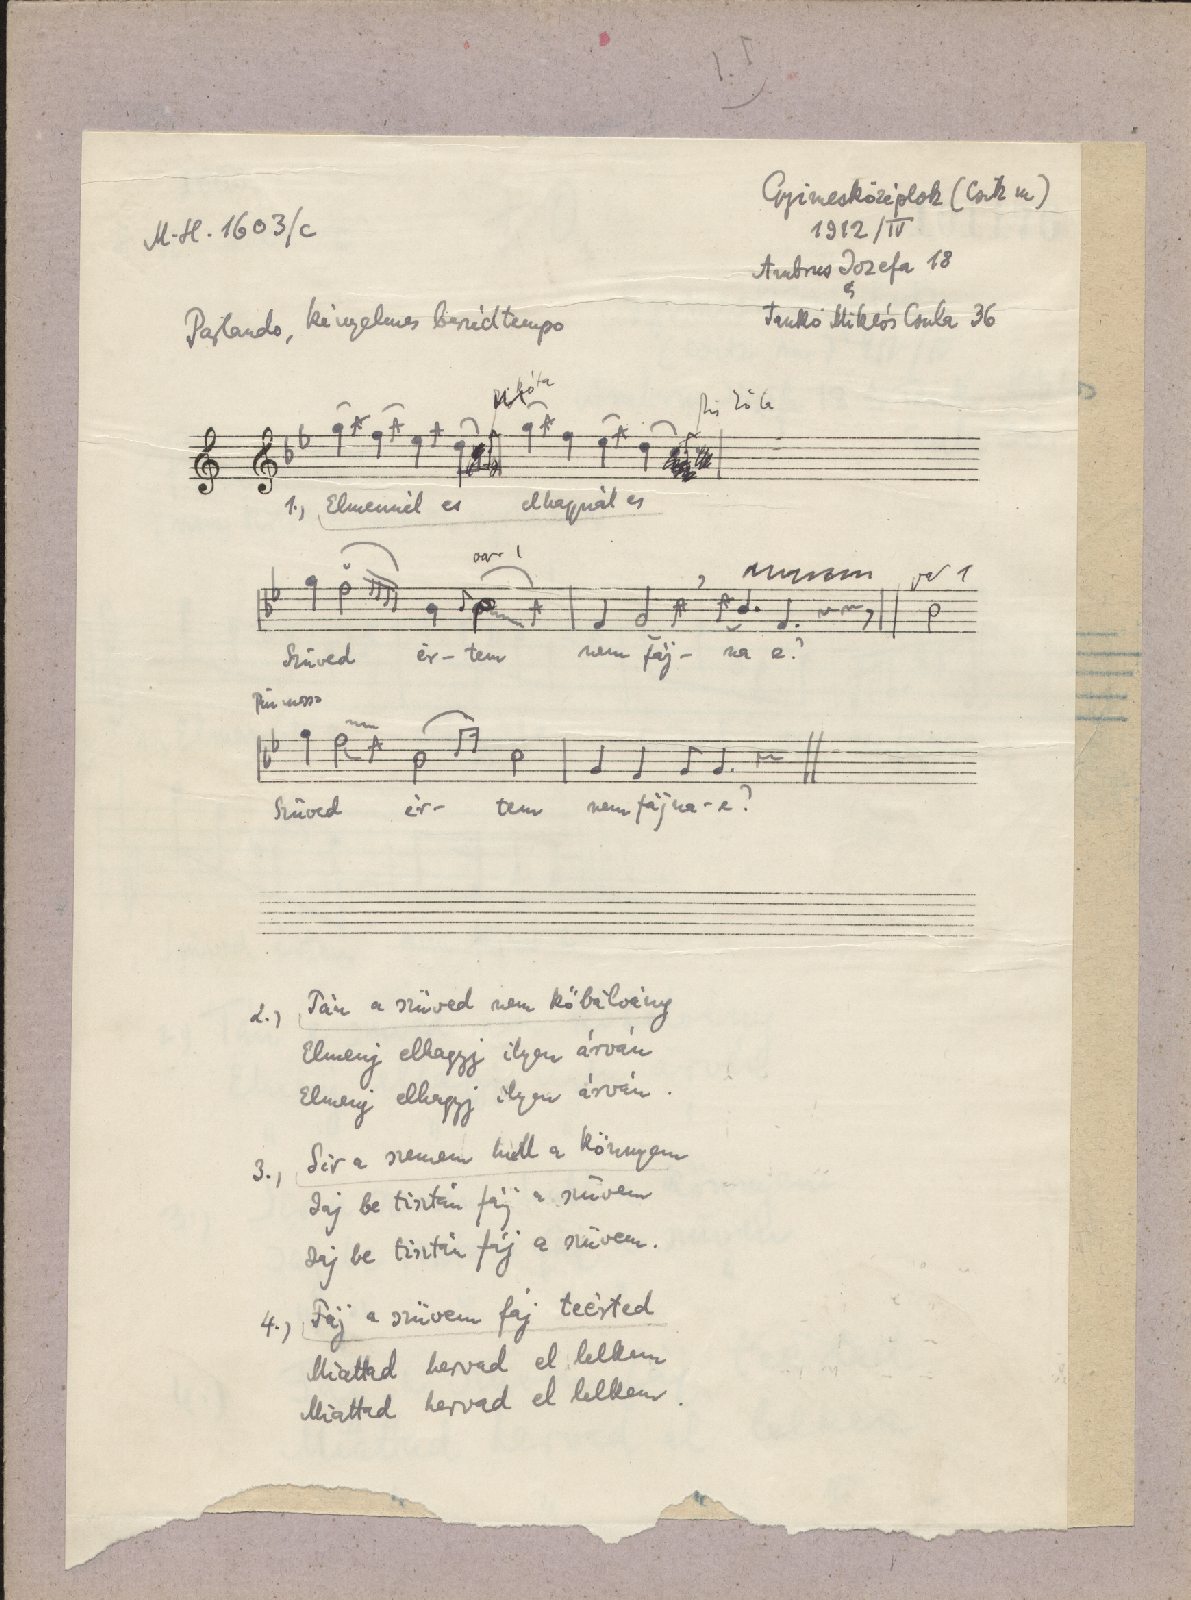 M-H. 1603/c
Gyimesközéplok (Csík m)
1912/IV
Ambrus Jozefa 18
és
Tankó Miklós Csula 36
Parlando, kényelmes beszédtempo
1., Elmennél es elhagynál es
var 1
var 1
Szüved ér- tem nem fáj- na e?
Più mosso
Szüved ér- tem nem fájna-e?
2., Tán a szüved nem kőbálvány
Elmenj elhagyj ilyen árván
Elmenj elhagyj ilyen árván.
3., Sír a szemem hull a könnyem
Jaj be tisztán fáj a szüvem
Jaj be tisztán fáj a szüvem.
4., Fáj a szüvem fáj teérted
Miattad hervad el lelkem
Miattad hervad el lelkem.